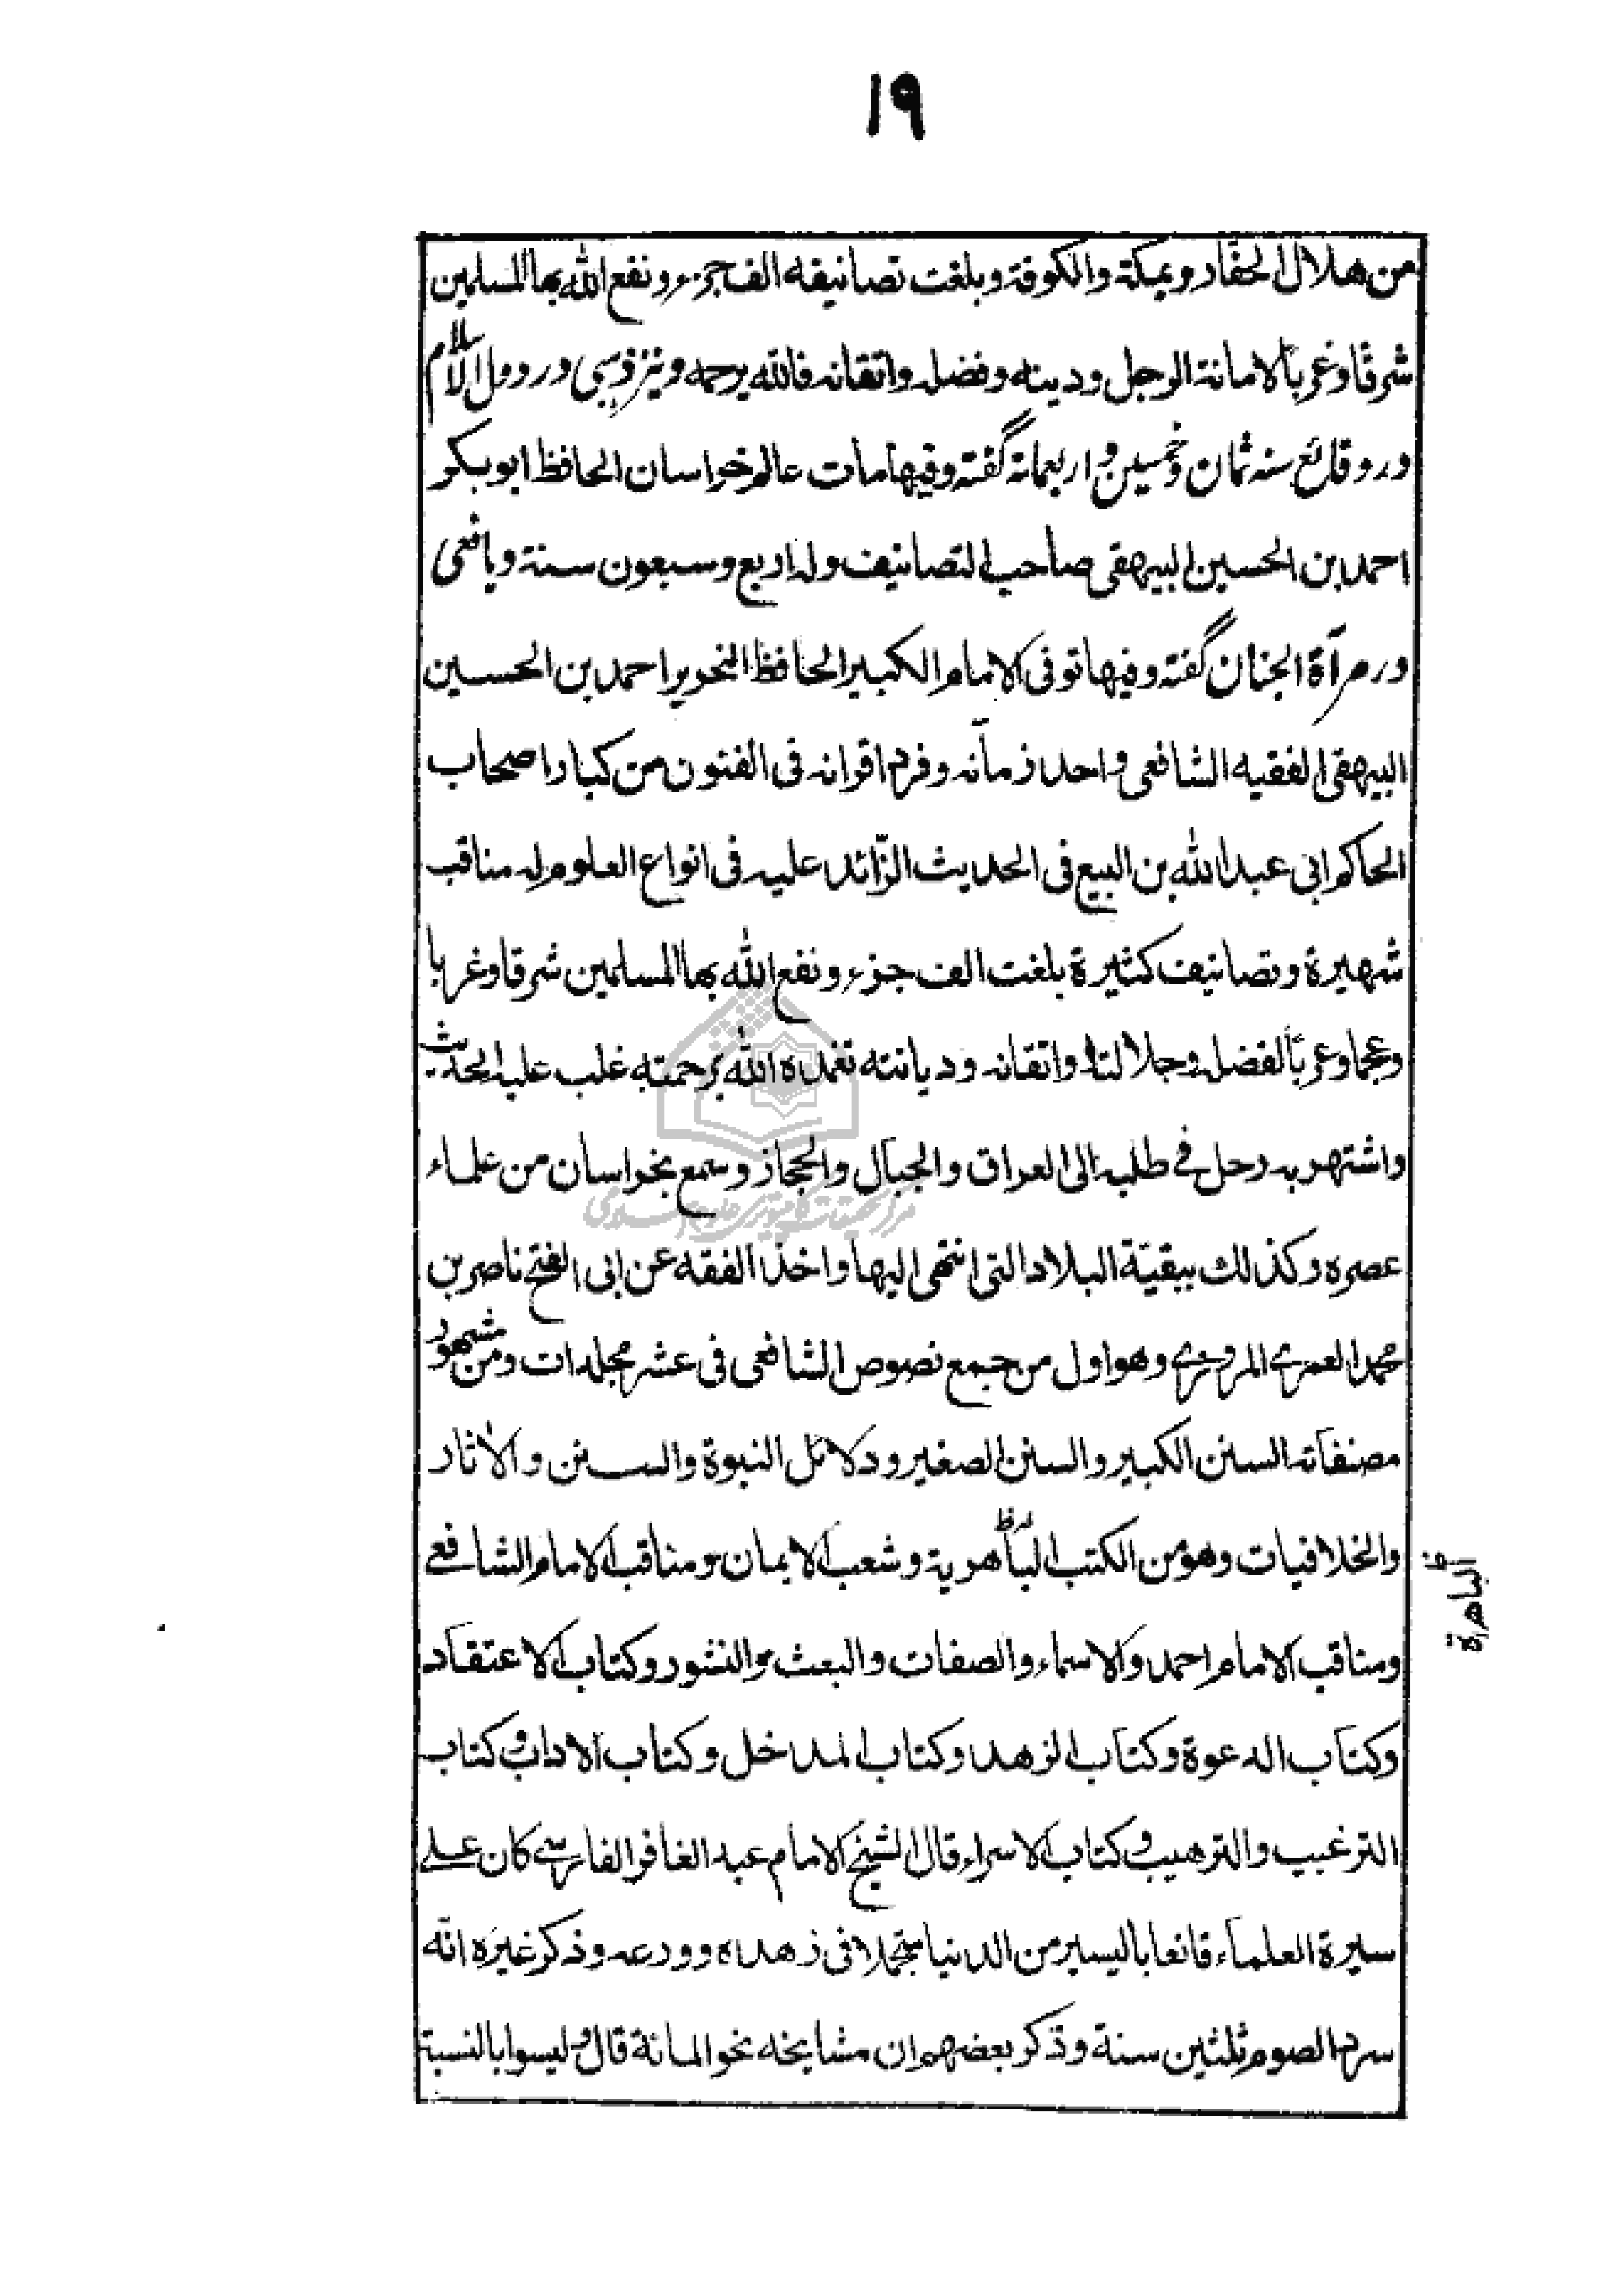 ١٩
من هلال الحفار وبمكة والكوفة وبلغت تصانيفه الف جزء ونفع الله بها المسلمين
شرقا وغربا لامانة الرجل ودينه وفضله واتقانه فالله يرحمه ونيز ذهبى در دول الاسلام
در وقائع سنه ثمان وخمسين واربعمائة گفته وفيها مات عالم خراسان الحافظ ابو بكر
احمد بن الحسين البيهقى صاحب التصانيف وله اربع وسبعون سنة ويافعى
در مرآة الجنان گفته وفيها توفى الامام الكبير الحافظ النحرير احمد بن الحسين
البيهقى الفقيه الشافعى واحد زمانه وفرد اقرانه فى الفنون من كبار اصحاب
الحاكم ابى عبد الله بن البيع فى الحديث الزّائد عليه فى انواع العلوم له مناقب
شهيرة وتصانيف كثيرة بلغت الف جزء ونفع الله بها المسلمين شرقا وغربا
وعجما وعربا لفضله وجلالته واتقانه وديانته تغمده الله برحمته غلب عليه الحديث
واشتهر به رحل فى طلبه الى العراق والجبال والحجاز وسمع بخراسان من علماء
عصره وكذلك ببقيّة البلاد التى انتهى اليها واخذ الفقه عن ابى الفتح ناصر بن
محمد العمرى المروزى وهو اول من جمع نصوص الشافعى فى عشر مجلدات ومن مشهور
مصنفاته السنن الكبير والسنن الصغير ودلائل النبوة والسنن والاثار
والخلافيات وهو من الكتب البأهرية وشعب الايمان ومناقب الامام الشافعى
الباهرة ظ
ومناقب الامام احمد والاسماء والصفات والبعث والنشور وكتاب الاعتقاد
وكتاب الدعوة وكتاب الزهد وكتاب المدخل وكتاب الاداب وكتاب
الترغيب والترهيب وكتاب الاسراء قال الشيخ الامام عبد الغافر الفارسى كان على
سيرة العلماء قانعا باليسير من الدنيا متجملا فى زهده وورعه وذكر غيره انّه
سرد الصوم ثلثين سنة وذكر بعضهم ان مشايخه نحو المائة قال وليسوا بالنسبة
مركز تحقيقات كامپيوترى علوم اسلامى